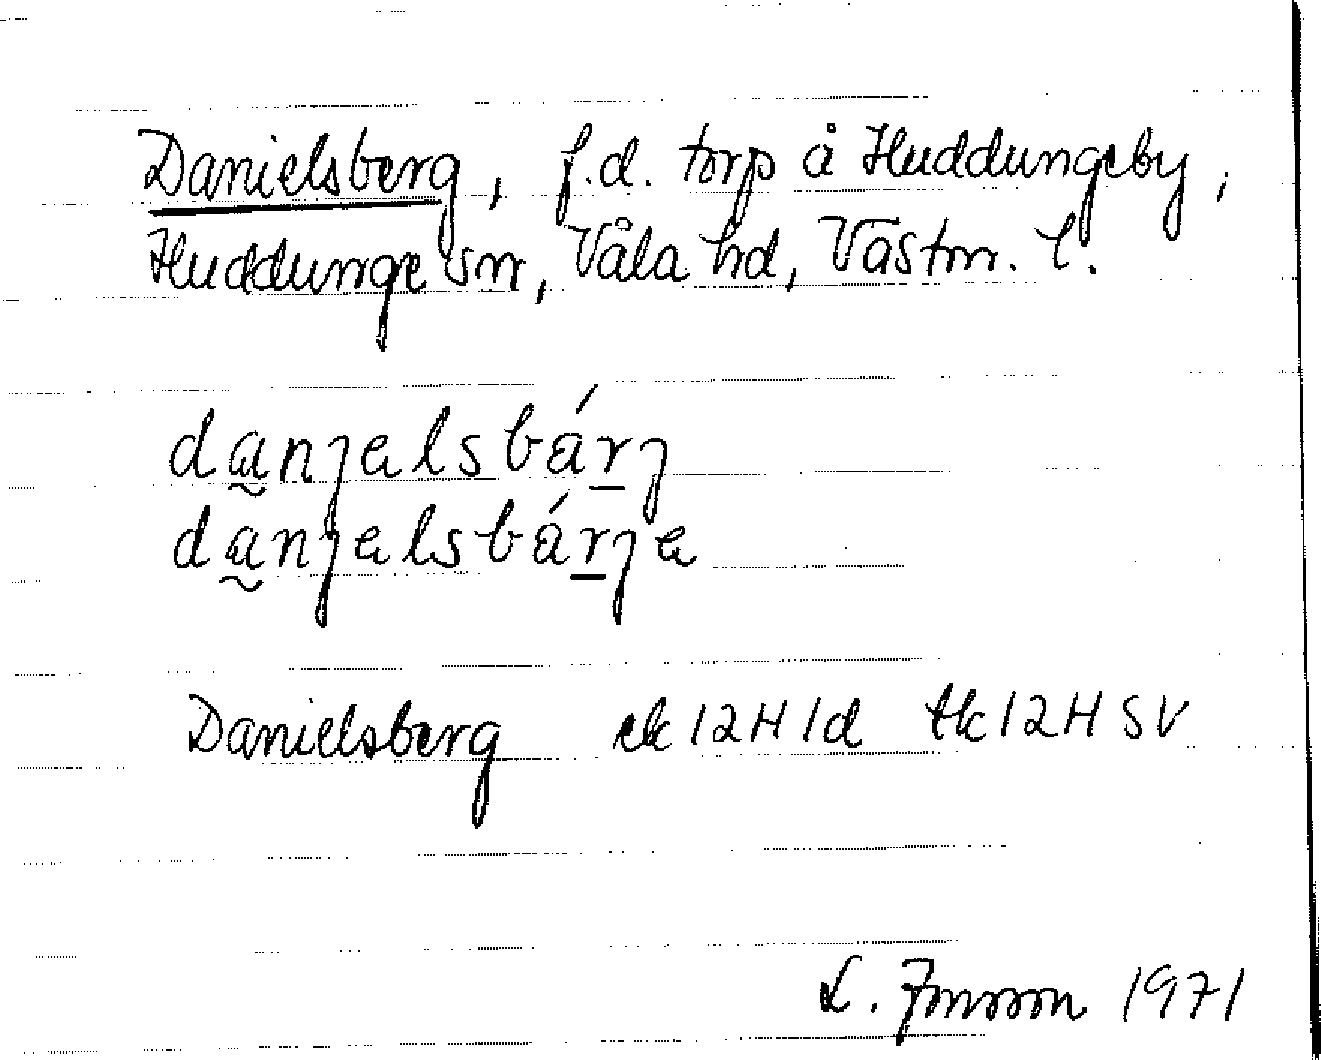 Danielsberg, f.d. torp å Huddungeby,
Huddunge sn, Våla hd, Västm. l.
da̰nȷelsbárȷ
da̰nȷelsbárȷe
Danielsberg ek 12H1d tk 12H SV
L. Jonsson 1971